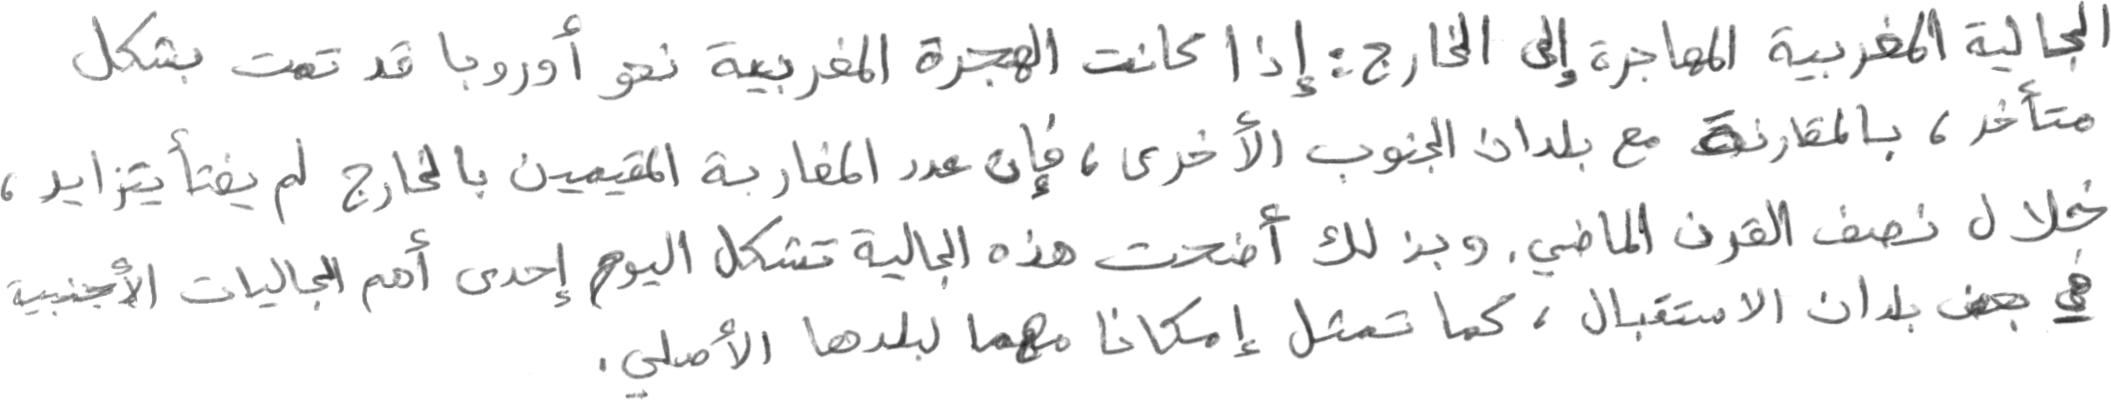 الجالية المغربية المهاجرة إلى الخارج: إذا كانت الهجرة المغربية نحو أوروبا قد تمت بشكل
متأخر، بالمقارنة مع بلدان الجنوب الأخرى، فإن عدد المغاربة المقيمين بالخارج لم يفتأ يتزايد،
خلال نصف القرن الماضي. وبذلك أضحت هذه الجالية تشكل اليوم إحدى أهم الجاليات الأجنبية
في بعض بلدان الاستقبال، كما تمثل إمكانا مهما لبلدها الأصلي.